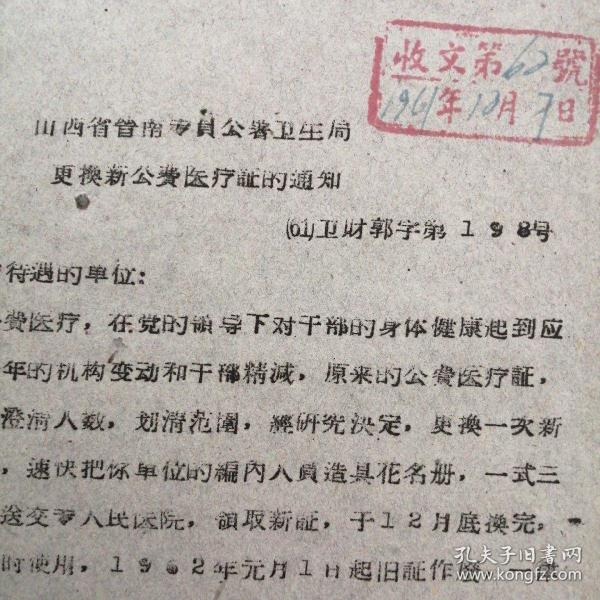 收文第62號
1961年10月7日
山西省晋南专員公署卫生局
更換新公費医疗証的通知
(61)卫財郭字第198号
待遇的单位:
費医疗，在党的領导下对干部的身体健康起到应
年的机构变动和干部精减，原来的公費医疗証，
澄清人数，划清范围，經研究决定，更換一次新
，速快把你单位的編內人員造具花名册，一式三
送交专人民医院，領取新証，于12月底換完，
时使用，1962年元月1日起旧証作廢
孔夫子旧书网
www.kongfz.com